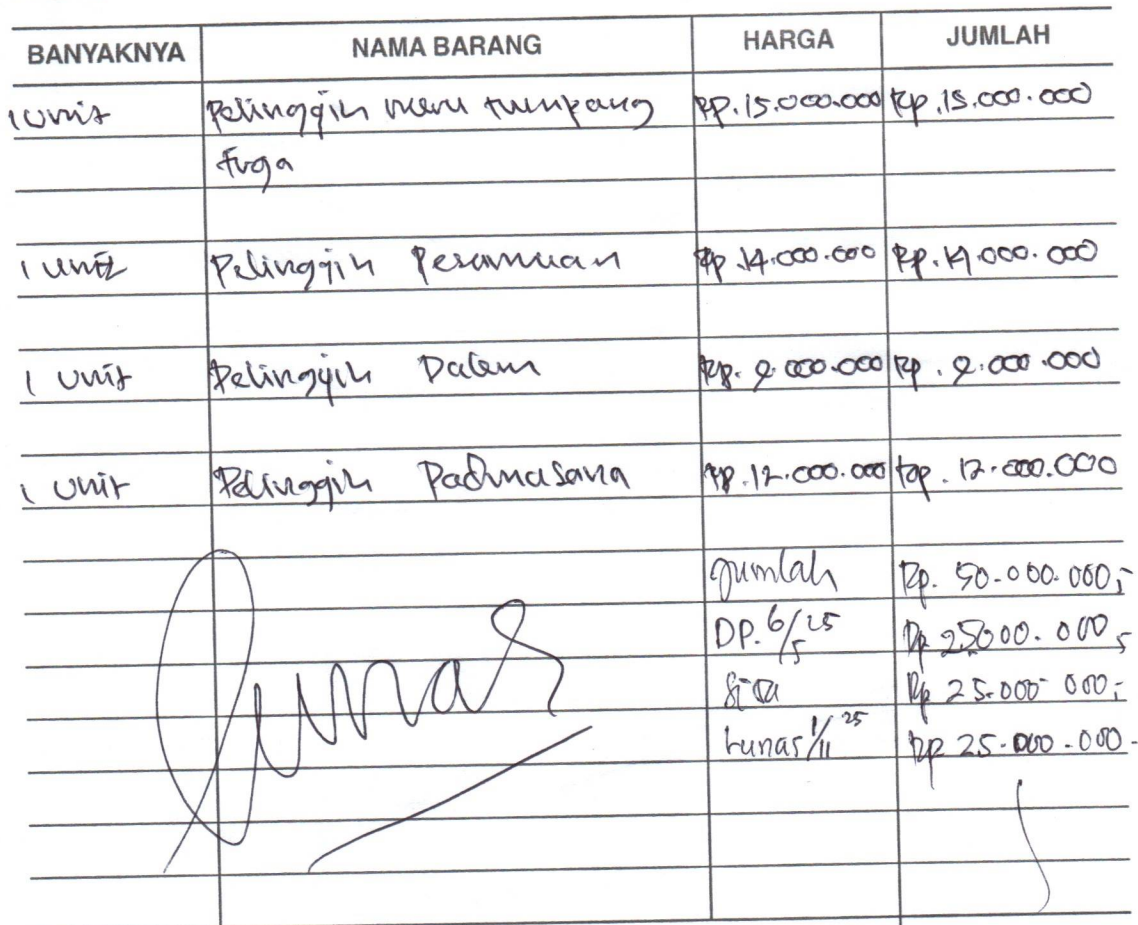 BANYAKNYA NAMA BARANG HARGA JUMLAH
1 Unit Pelinggih meru tumpang Rp. 15.000.000 Rp. 15.000.000
tiga
1 unit Pelinggih Pesamuan Rp. 14.000.000 Rp. 14.000.000
1 Unit Pelinggih Dalem Rp. 9.000.000 Rp. 9.000.000
1 Unit Pelinggih Padmasana Rp. 12.000.000 Rp. 12.000.000
Jumlah Rp. 50.000.000,-
DP. 6/5 25 Rp 25000.000,-
Sisa Rp 25.000.000,-
Lunas 1/11 25 Rp 25.000.000.-
Lunas